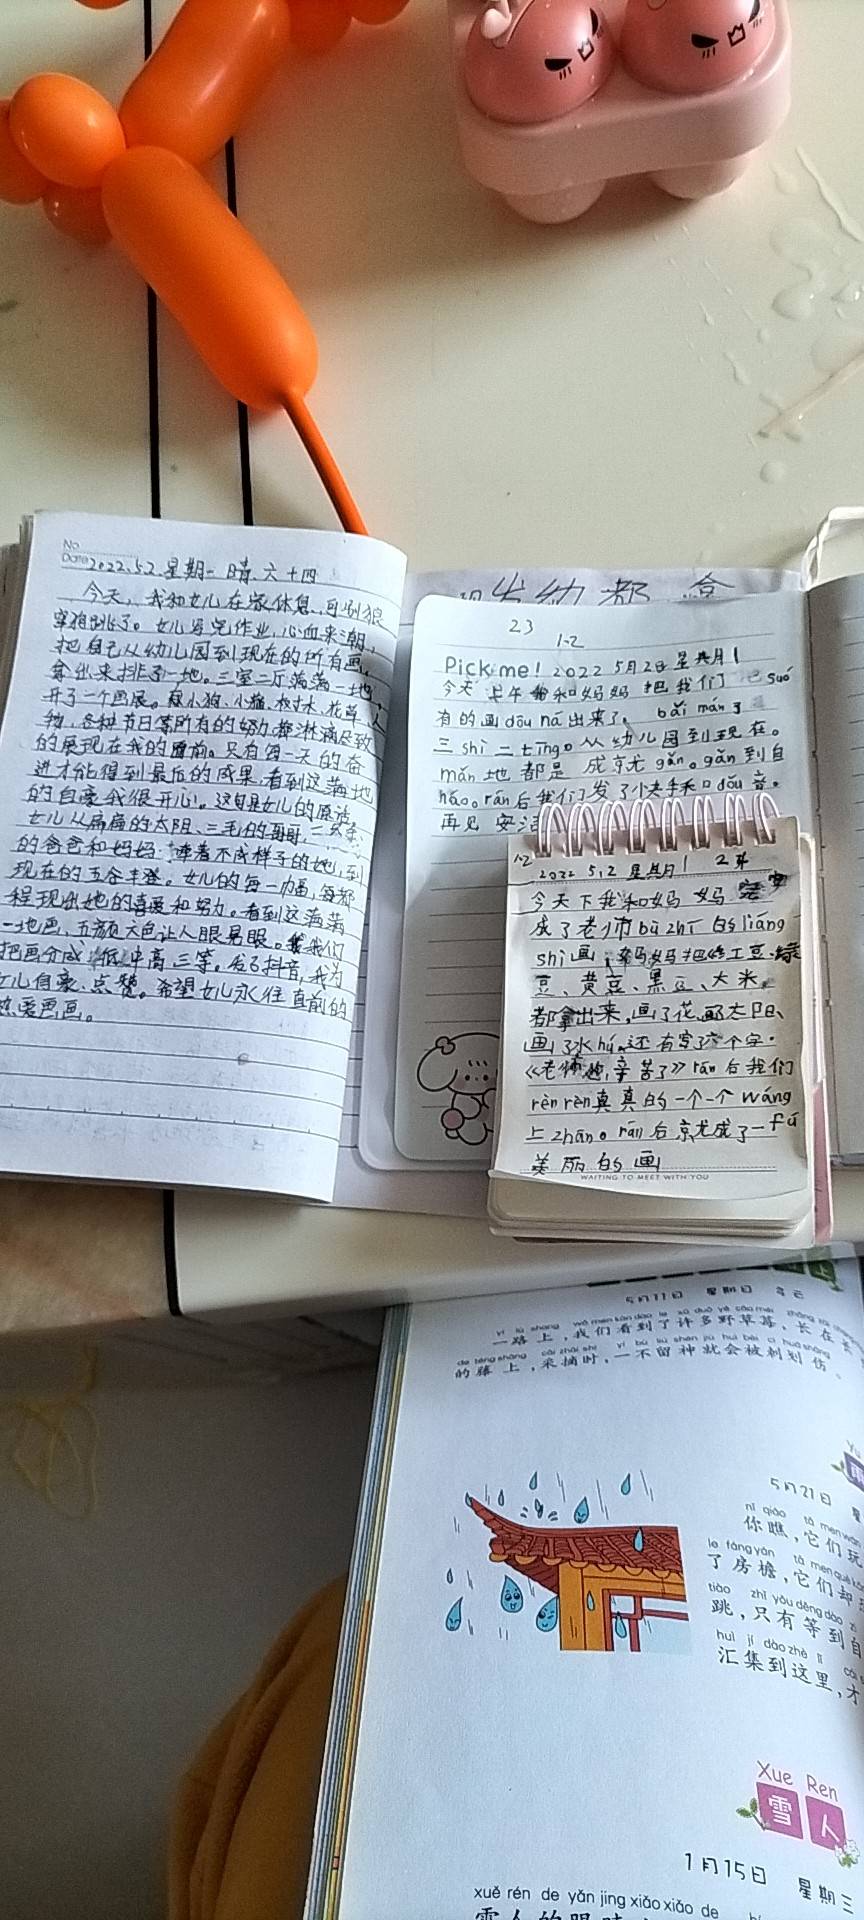 No
Date 2022.5.2 星期一 晴 六十四
今天，我和女儿在家休息，可别狼
穿狗跳了。女儿写完作业，心血来潮，
把自己从幼儿园到现在的所有画，
拿出来排了一地。三室二厅满满一地，
开了一个画展。小狗、小猫、树木、花草、人
物，各种节日等所有的努力都淋漓尽致
的展现在我的面前。只有每一天的奋
进才能得到最后的成果，看到这满地
的自豪我很开心。这句是女儿的原话。
女儿从扁扁的太阳、三毛的哥哥，二
的爸爸和妈妈，不成样子的她，到
现在的五谷丰登。女儿的每一幅，每都
程现出她的喜爱和努力。看到这满满
一地画，五颜六色让人眼晃眼。我们
把画分成低中高三等。发了抖音，我为
女儿自豪、点赞。希望女儿永往直前的
热爱画画。
23
1-2
Pick me! 2022 5月2日星其月1
今天上午和妈妈把我们 suó
有的画dōu ná出来了。bǎi mǎn了
三shì二tīng。从幼儿园到现在。
mǎn地都是成京尤gǎn。gǎn到自
háo。rán后我们发了小夫手禾口dǒu音。
再见 安
1-2
2022 5.2 星其月1
今天下我和妈妈完
成了老师bù zhì的liáng
shi画，妈妈把红豆、绿
豆、黄豆、黑豆、大米，
都拿出来，画了花、太阳、
画了水hú，还有写了六个字。
《老师您，辛苦了》rán后我们
rèn rèn真真的一个一个wǎng
上zhān。rán后京尤成了一fú
美丽的画
WAITING TO MEET WITH YOU
5月11日 星期日
一路上，我们看到了许多野草莓，长在
的藤上，采摘时，一不留神就会被刺划伤。
5月21日
nǐ qiáo tā men wán
你瞧，它们玩
le fáng yán tā men què
了房檐，它们却
tiào zhǐ yǒu děng dào zì
跳，只有等到自
huì jí dào zhè lǐ
汇集到这里，才
Xue Ren
雪人
1月15日 星期三
xuě rén de yǎn jing xiǎo xiǎo de